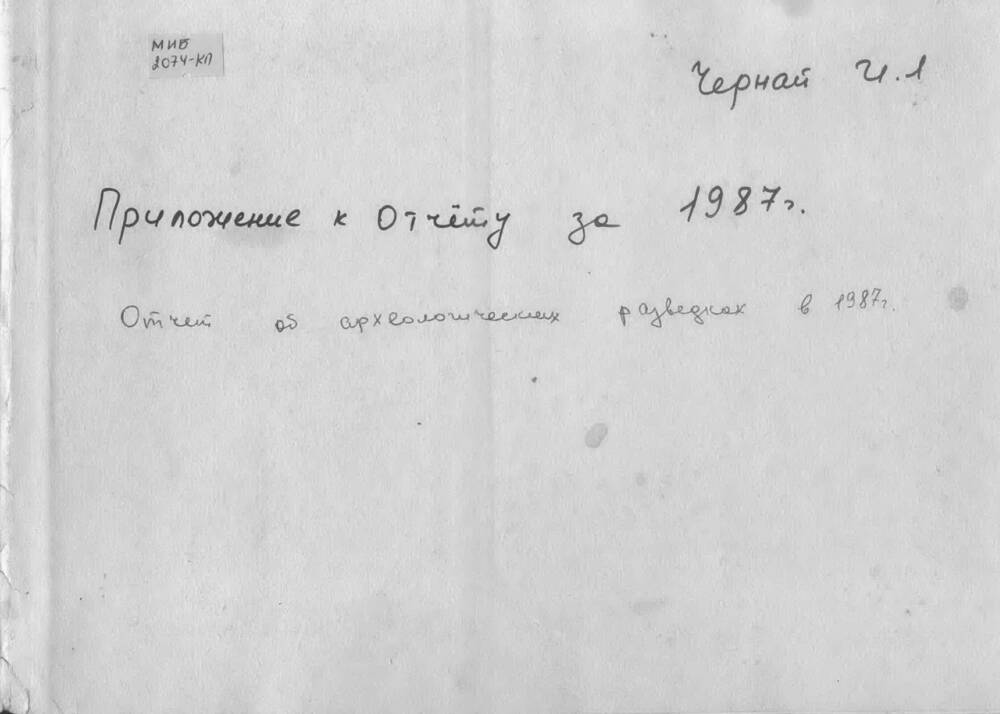 МИБ
2074-КП
Чернай И.Л
Приложение к Отчёту за 1987г.
Отчет об археологических разведках в 1987г.